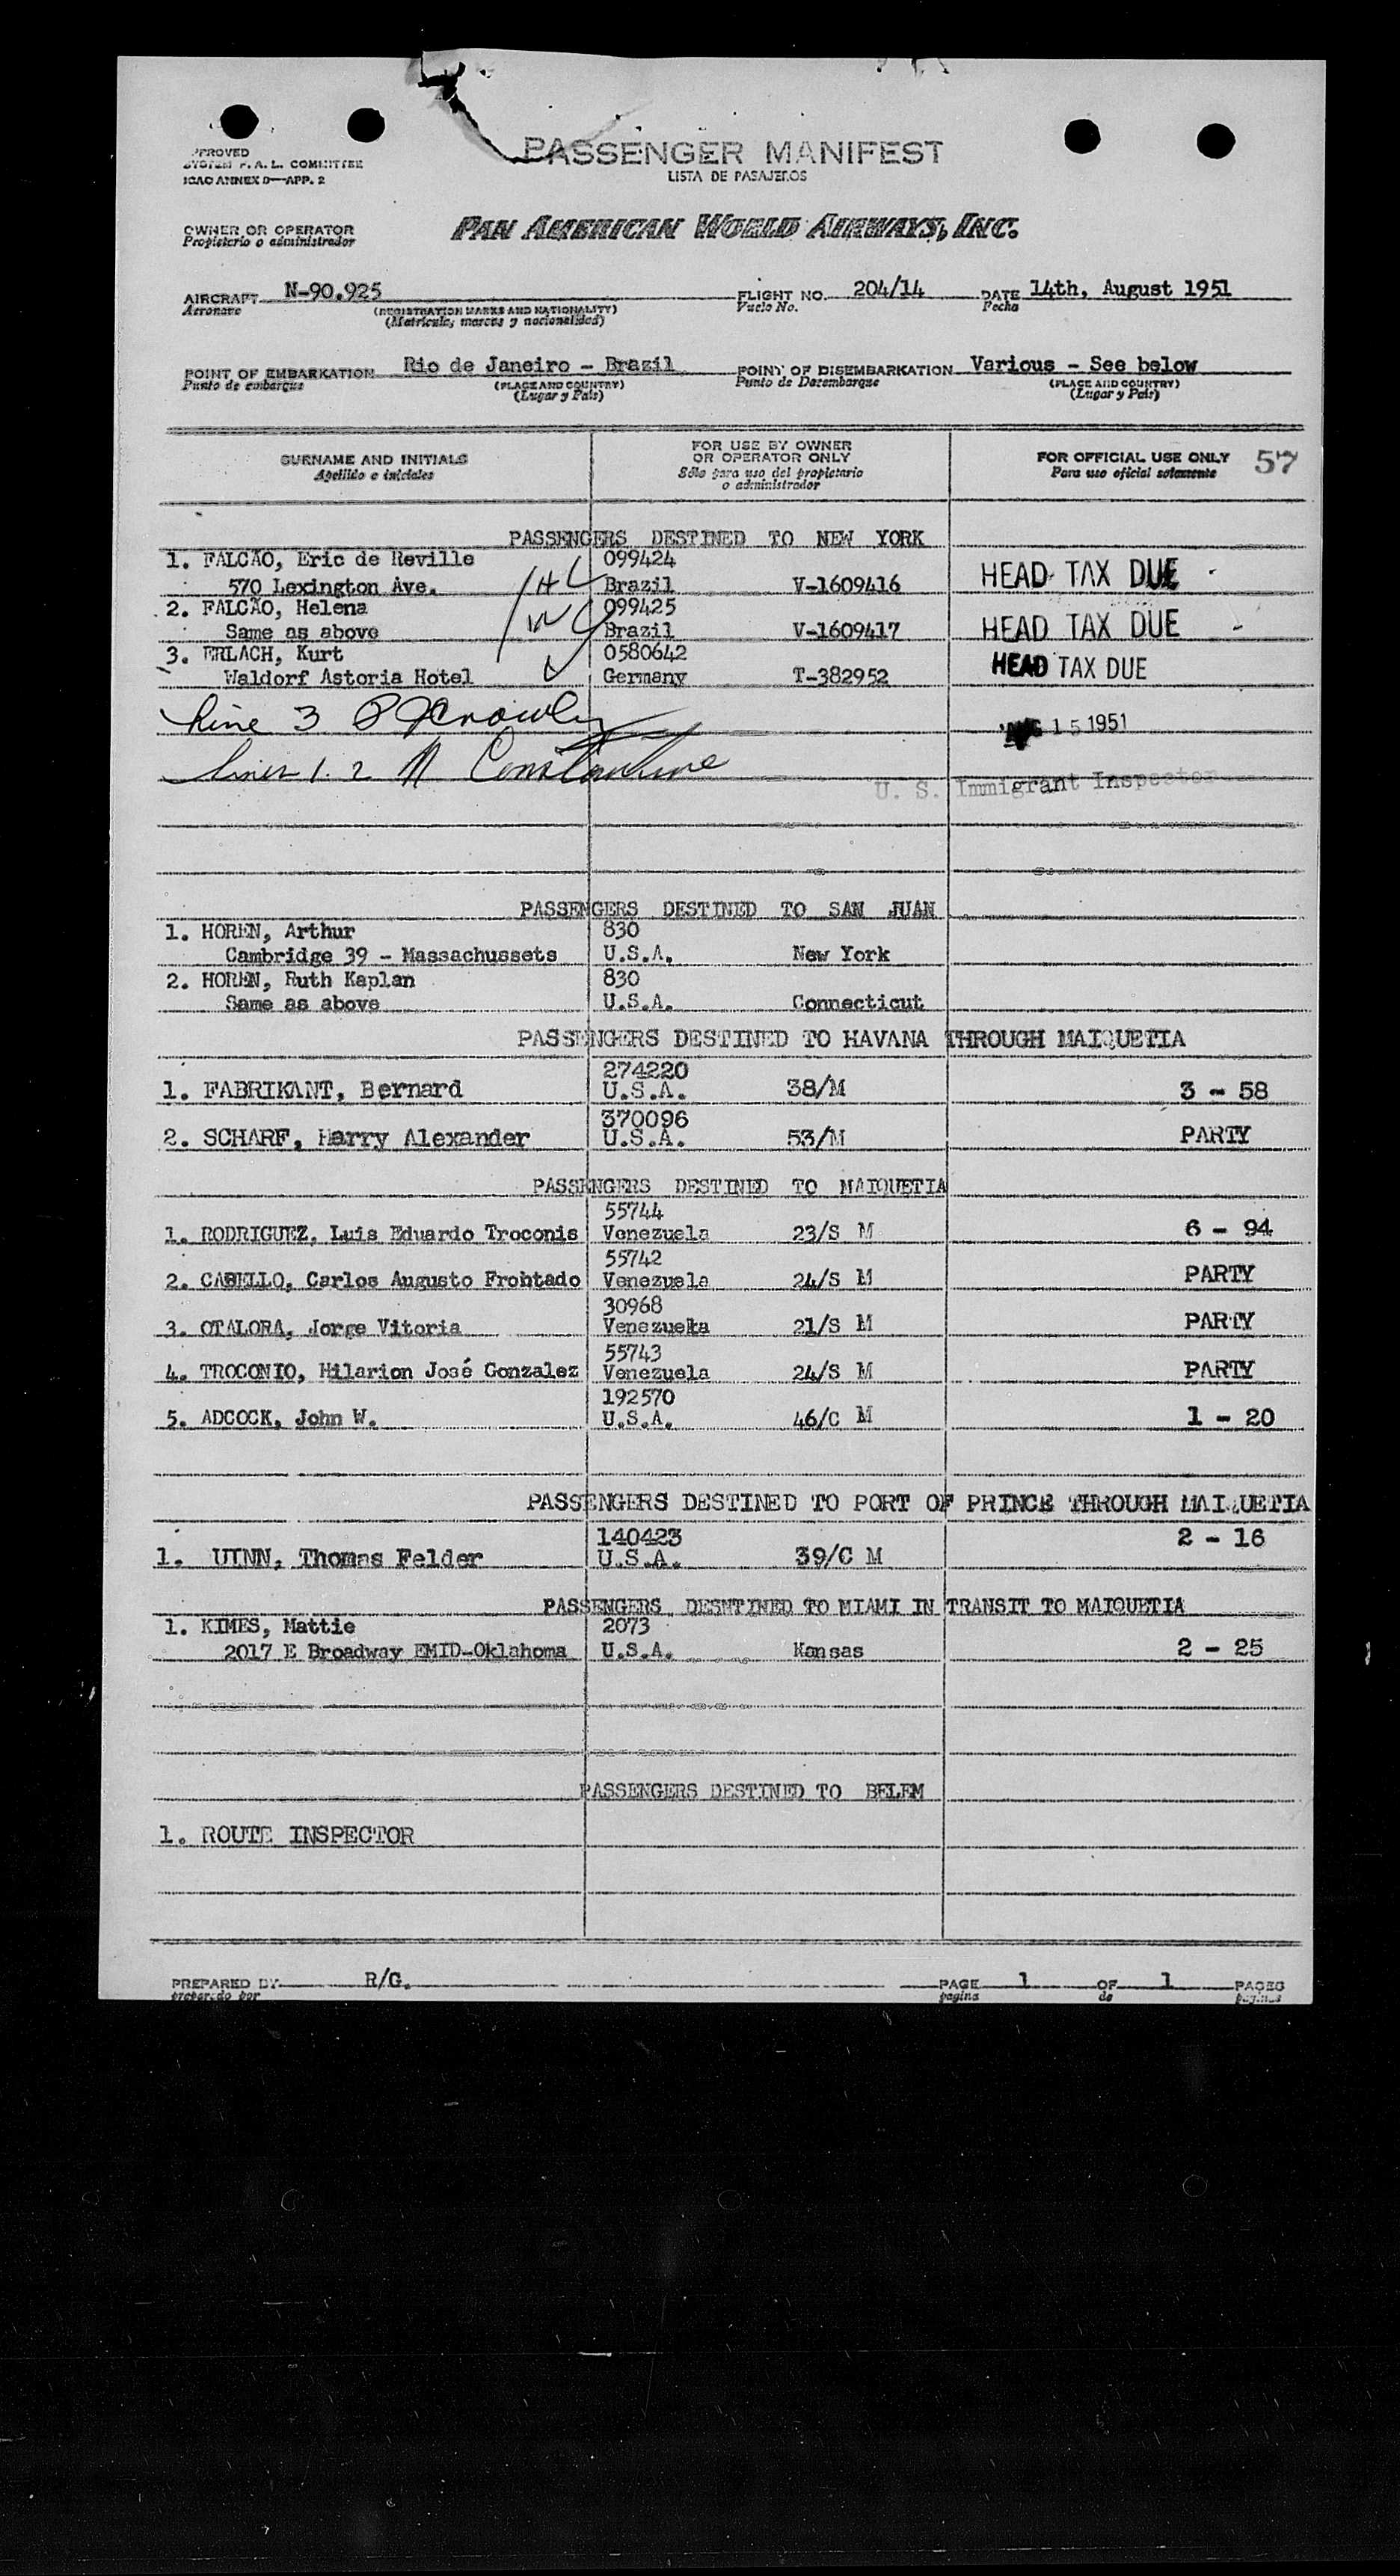 PASSENGER MANIFEST
LISTA DE PASAJEROS
SYSTEM F. A. L. COMMITTEE
ICAO ANNEX 9—APP. 2
OWNER OR OPERATOR
Propietario o administrador
PAN AMERICAN WORLD AIRWAYS, INC.
AIRCRAFT N-90.925 FLIGHT NO. 204/14 DATE 14th, August 1951
Aeronave (REGISTRATION MARKS AND NATIONALITY) Vuelo No. Fecha
(Matricula, marcas y nacionalidad)
POINT OF EMBARKATION Rio de Janeiro - Brazil POINT OF DISEMBARKATION Various - See below
Punto de embarque (PLACE AND COUNTRY) Punto de Desembarque (PLACE AND COUNTRY)
(Lugar y País) (Lugar y País)
SURNAME AND INITIALS FOR USE BY OWNER OR OPERATOR ONLY FOR OFFICIAL USE ONLY 57
Apellido e iniciales Sólo para uso del propietario o administrador Para uso oficial solamente
PASSENGERS DESTINED TO NEW YORK
1. FALCÃO, Eric de Reville 099424
570 Lexington Ave. Brazil V-1609416 HEAD TAX DUE
2. FALCÃO, Helena 099425
Same as above Brazil V-1609417 HEAD TAX DUE
3. ERLACH, Kurt 0580642
Waldorf Astoria Hotel Germany T-382952 HEAD TAX DUE
Line 3
AUG 15 1951
Lines 1. 2 N Constantine
U. S. Immigrant Inspector
PASSENGERS DESTINED TO SAN JUAN
1. HOREN, Arthur 830
Cambridge 39 - Massachussets U.S.A. New York
2. HOREN, Ruth Kaplan 830
Same as above U.S.A. Connecticut
PASSENGERS DESTINED TO HAVANA THROUGH MAIQUETIA
274220
1. FABRIKANT, Bernard U.S.A. 38/M 3 - 58
370096
2. SCHARF, Harry Alexander U.S.A. 53/M PARTY
PASSENGERS DESTINED TO MAIQUETIA
55744
1. RODRIGUEZ, Luis Eduardo Troconis Venezuela 23/S M 6 - 94
55742
2. CABELLO, Carlos Augusto Frohtado Venezuela 24/S M PARTY
30968
3. OTALORA, Jorge Vitoria Venezuela 21/S M PARTY
55743
4. TROCONIO, Hilarion José Gonzalez Venezuela 24/S M PARTY
192570
5. ADCOCK, John W. U.S.A. 46/C M 1 - 20
PASSENGERS DESTINED TO PORT OF PRINCE THROUGH MAIQUETIA
140423 2 - 16
1. UINN, Thomas Felder U.S.A. 39/C M
PASSENGERS DESNTINED TO MIAMI IN TRANSIT TO MAIQUETIA
1. KIMES, Mattie 2073
2017 E Broadway EMID-Oklahoma U.S.A. Kansas 2 - 25
PASSENGERS DESTINED TO BELEM
1. ROUTE INSPECTOR
PREPARED BY R/G. PAGE 1 OF 1 PAGES
preparado por pagina de paginas